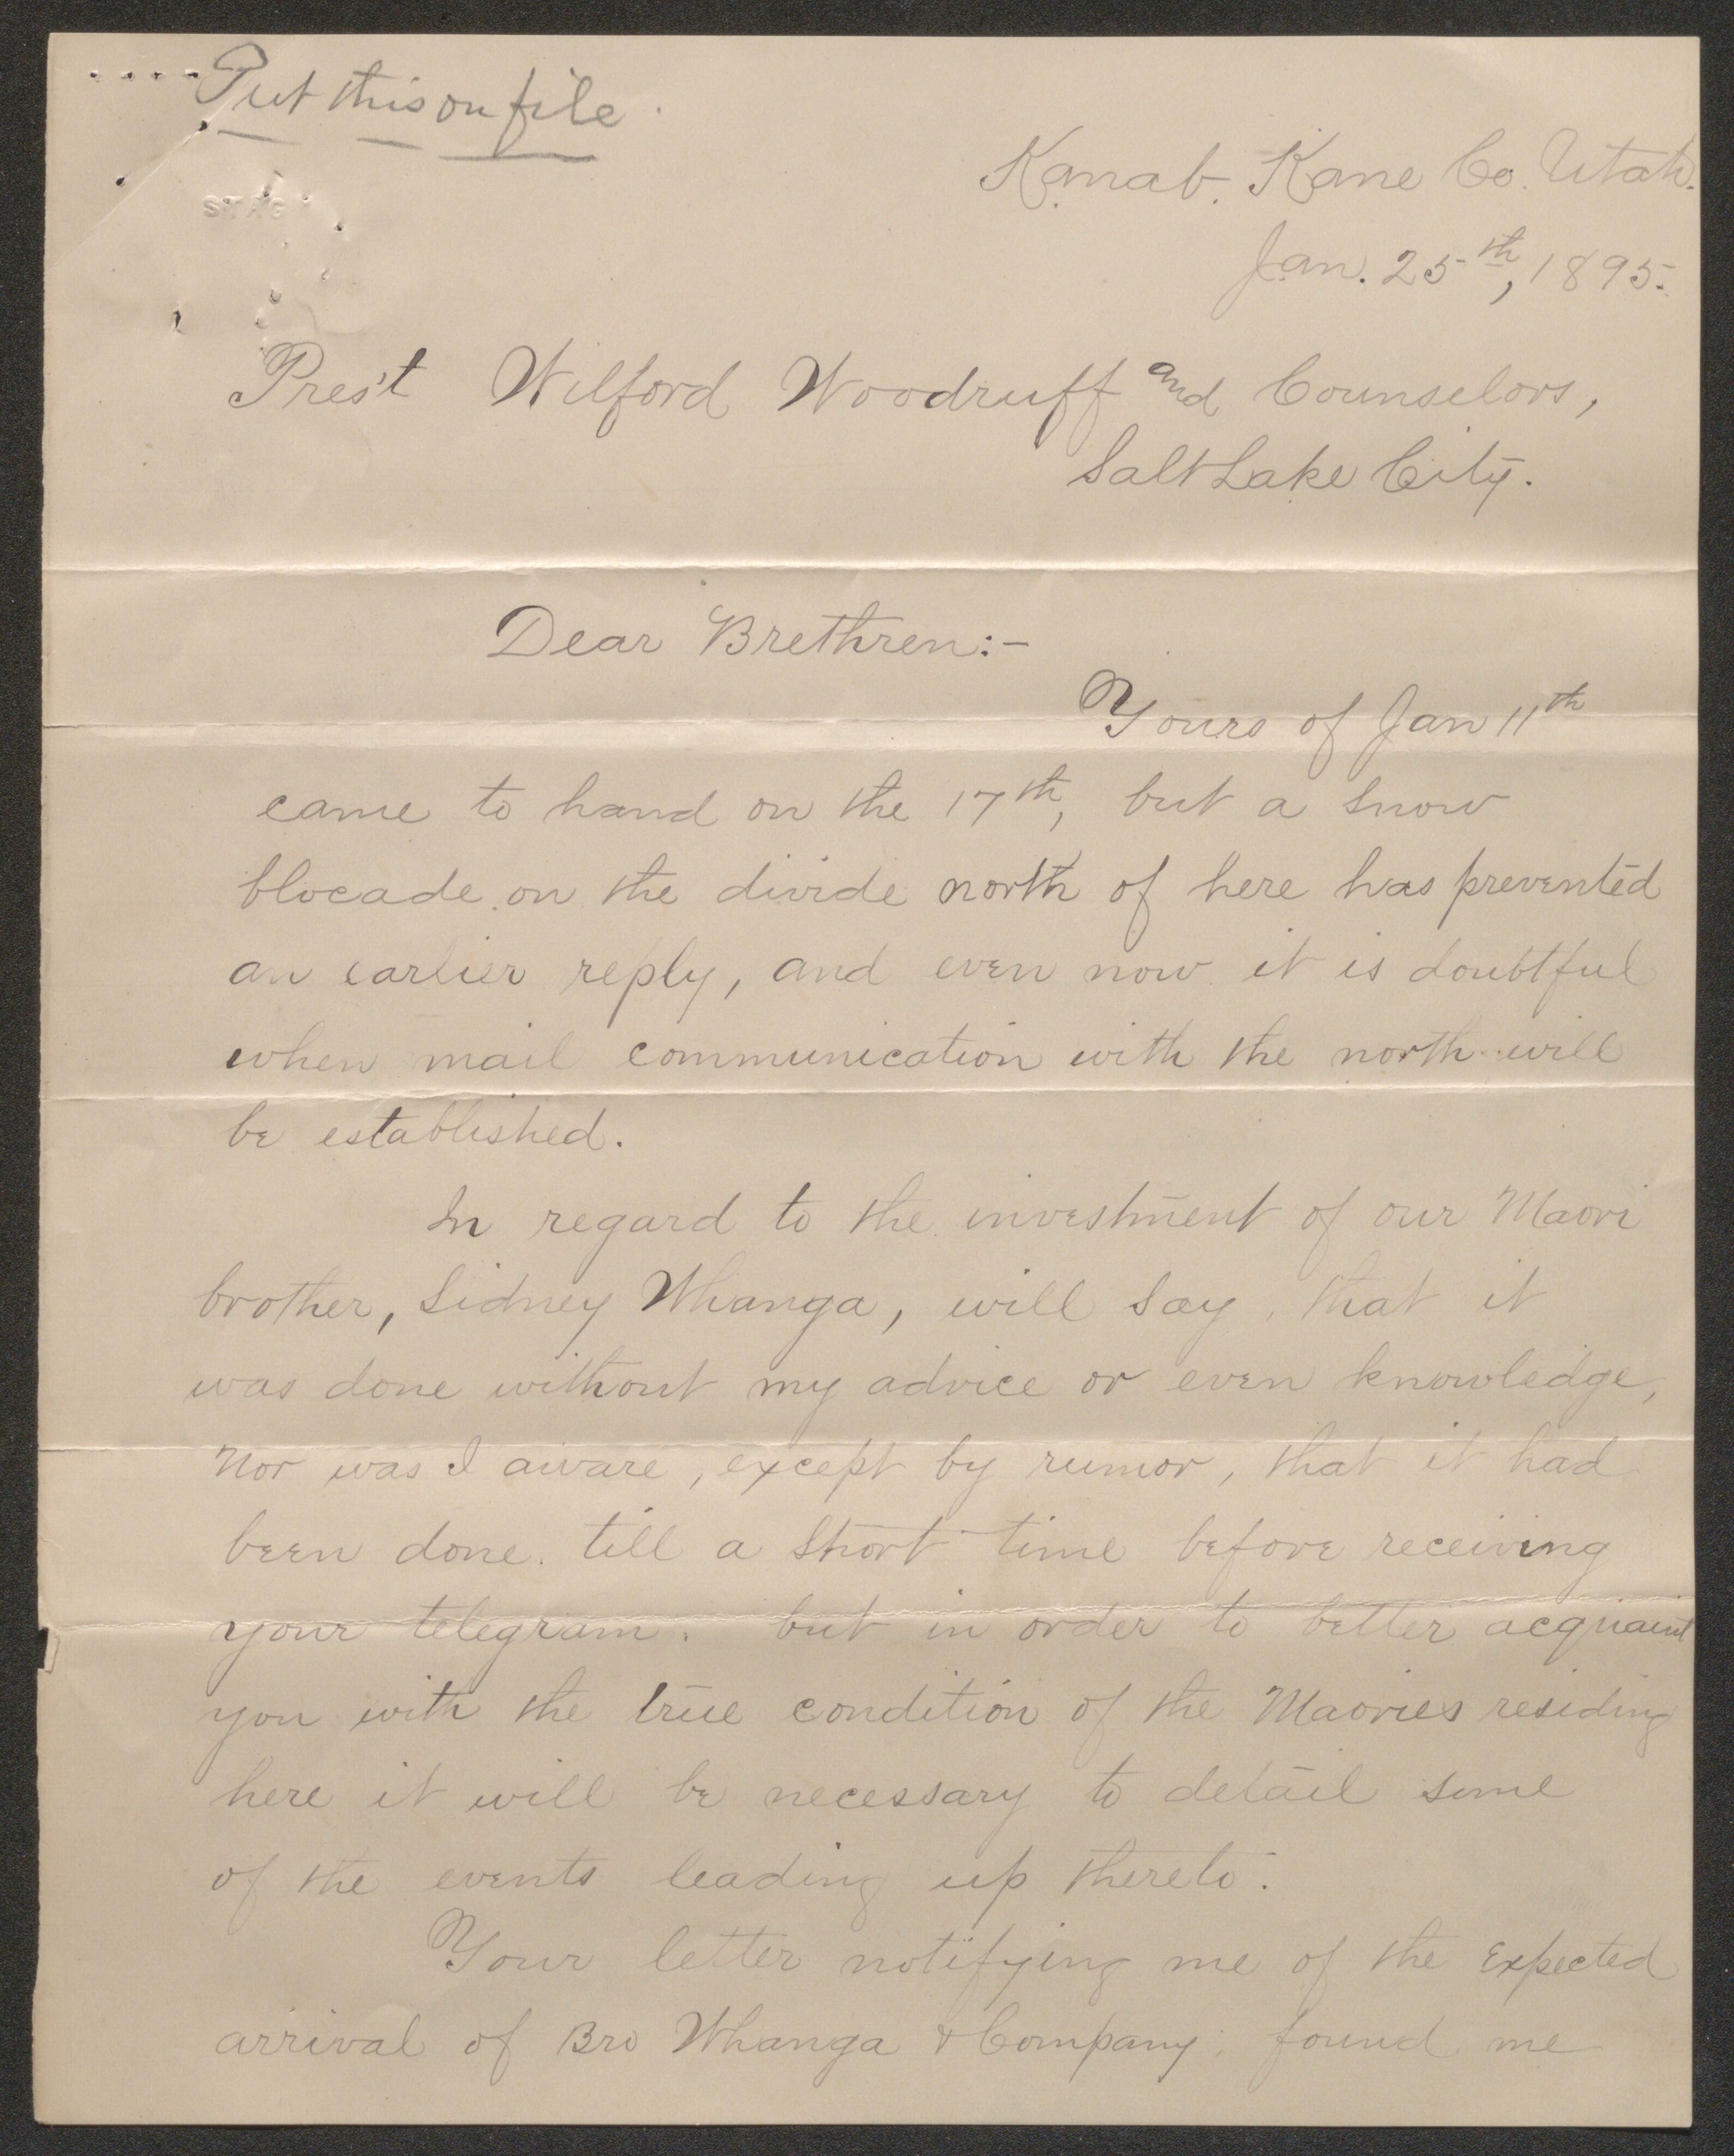 Put this on file.
Kanab. Kane Co. Utah.
Jan. 25th, 1895.
Pres't Wilford Woodruff and Counselors,
Salt Lake City.
Dear Brethren:-
Yours of Jan 11th
came to hand on the 17th, but a snow
blocade on the divide north of here has prevented
an earlier reply, and even now it is doubtful
when mail communication with the north will
be established.
In regard to the investment of our Maori
brother, Sidney Whanga, will say, that it
was done without my advice or even knowledge,
nor was I aware, except by rumor, that it had
been done. till a short time before receiving
your telegram. but in order to better acquaint
you with the true condition of the Maories residing
here it will be necessary to detail some
of the events leading up thereto.
Your letter notifying me of the expected
arrival of Bro Whanga & Company, found me